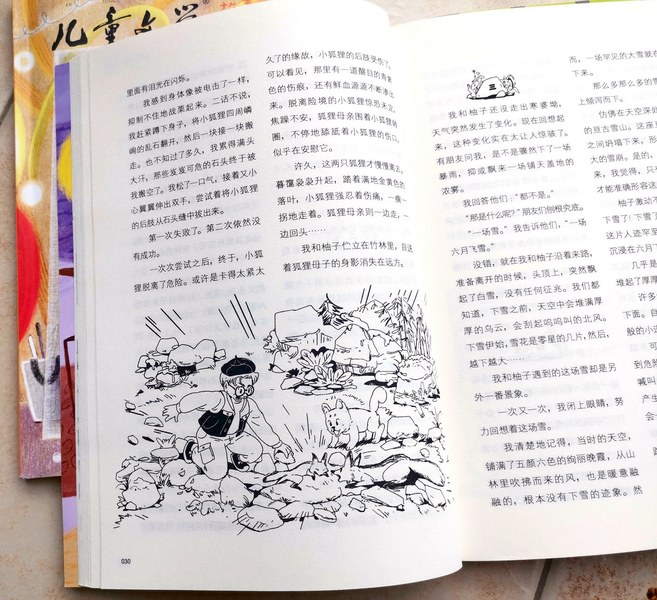 儿童文学
里面有泪光在闪烁。
我感到身体像被电击了一样，
抑制不住地战栗起来。二话不说，
我赶紧蹲下身子，将小狐狸四周嶙
峋的乱石翻开，然后一块接一块搬
走。也不知过了多久，我累得满头
大汗，那些岌岌可危的石头终于被
我搬空了。我松了一口气，接着又小
心翼翼伸出双手，尝试着将小狐狸
的后肢从石头缝中拔出来。
第一次失败了。第二次依然没
有成功。
一次次尝试之后，终于，小狐
狸脱离了危险。或许是卡得太紧太
久了的缘故，小狐狸的后肢受伤了，
可以看见，那里有一道醒目的青紫
色的伤痕，还有鲜血源源不断渗出
来。脱离险境的小狐狸惊恐未定，
焦躁不安，狐狸母亲围着小狐狸转
圈，不停地舔舐着小狐狸的伤口，
似乎在安慰它。
许久，这两只狐狸才慢慢离去。
暮霭袅袅升起，踏着满地金黄色的
落叶，小狐狸强忍着伤痛，一瘸一
拐地走着。狐狸母亲则一边走，一
边回头……
我和柚子伫立在竹林里，目送
着狐狸母子的身影消失在远方。
030
三
我和柚子还没走出寒婆坳，
天气突然发生了变化。现在回想起
来，这种变化实在太让人惊骇了。
有朋友问我，是不是骤然下了一场
暴雨，抑或飘来一场铺天盖地的
浓雾。
我回答他们：“都不是。”
“那是什么呢？”朋友们刨根究底。
“一场雪。”我告诉他们，“一场
六月飞雪。”
没错，就在我和柚子沿着来路，
准备离开的时候，头顶上，突然飘
起了白雪，没有任何征兆。我们都
知道，下雪之前，天空中会堆满厚
厚的乌云，会刮起呜呜叫的北风。
下雪伊始，雪花是零星的几片，然后，
越下越大……
我和柚子遇到的这场雪却是另
外一番景象。
一次又一次，我闭上眼睛，努
力回想着这场雪。
我清楚地记得，当时的天空，
铺满了五颜六色的绚丽晚霞，从山
林里吹拂而来的风，也是暖意融
融的，根本没有下雪的迹象。然
而，一场罕见的大雪就在
下来。
那么多那么多的雪
上倾泻而下。
仿佛在天空深处
的亘古雪山。这座
之间坍塌下来，形
大的雪崩。是的，
来，我觉得，只
才能准确形容这
柚子激动不
下雪了！下雪了
这片人迹罕至
沉浸在六月飞
几乎是
堆起了厚厚
许多
下面。自
般的小
可
到危险
喊叫
产生
会